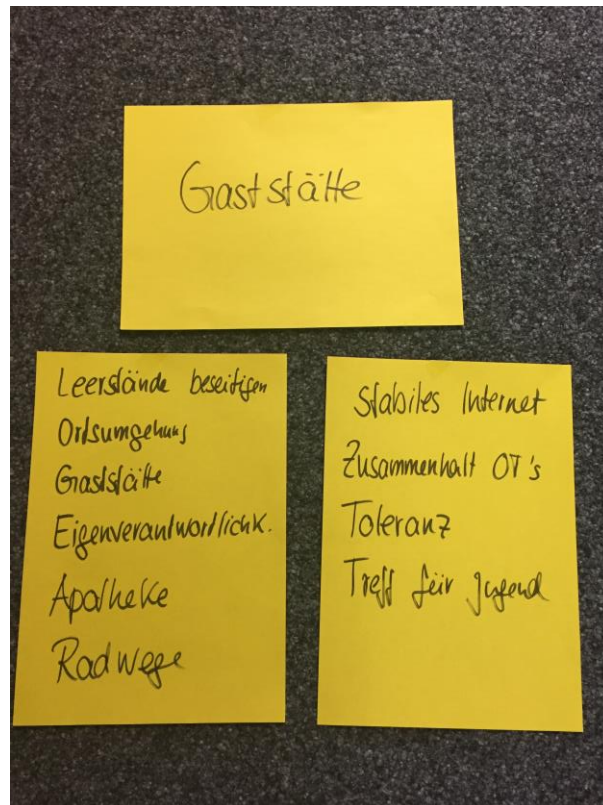 Gaststätte
Leerstände beseitigen
Ortsumgehung
Gaststätte
Eigenverantwortlichk.
Apotheke
Radwege
Stabiles Internet
Zusammenhalt OT's
Toleranz
Treff für Jugend